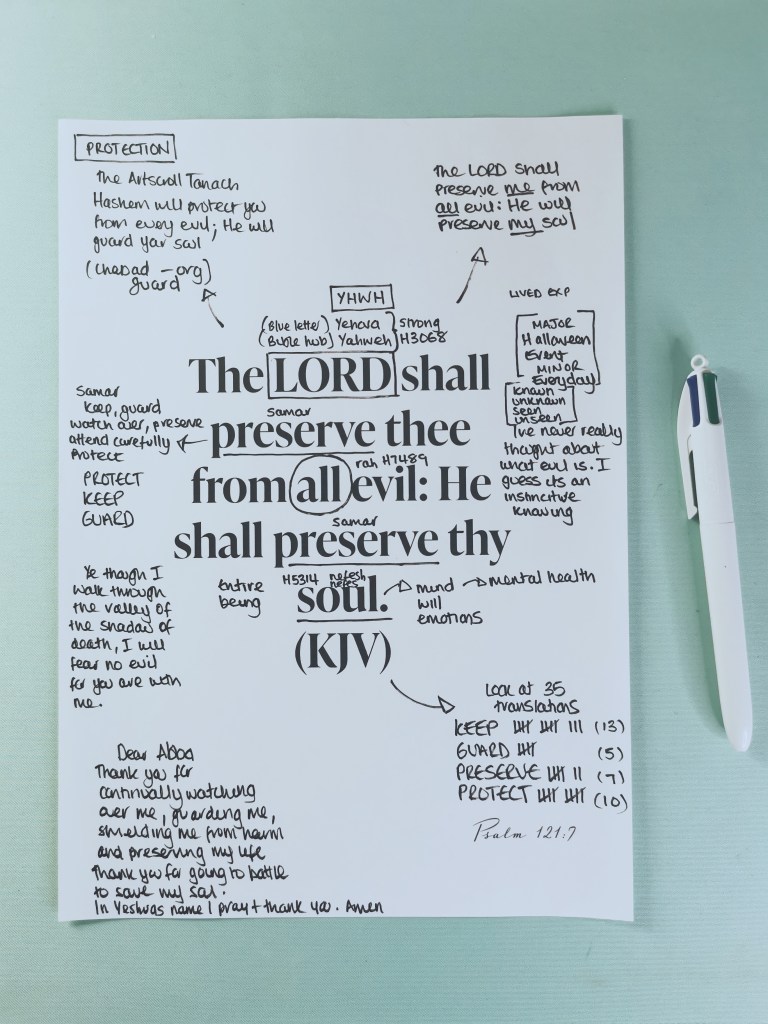 PROTECTION
The Artscroll Tanach
Hashem will protect you
from every evil; He will
guard your soul
(Chabad - org)
guard
The LORD shall
preserve me from
all evil: He will
preserve my soul
YHWH
(Blue letter) Yehova } Strong
(Bible hub) Yahweh } H3068
The LORD shall
samar
preserve thee
rah H7489
from all evil: He
samar
shall preserve thy
H5314 nefesh
nefes
soul.
(KJV)
LIVED EXP
MAJOR
Halloween
Event
MINOR
Everyday
known
unknown
seen
unseen
I've never really
thought about
what evil is. I
guess its an
instinctive
knowing
Samar
Keep, guard
watch over, preserve
attend carefully
Protect
PROTECT
KEEP
GUARD
Ye though I
walk through
the valley of
the shadow of
death, I will
fear no evil
for you are with
me.
entire
being
mind → mental health
will
emotions
Look at 35
translations
KEEP 卌 卌 III (13)
GUARD 卌 (5)
PRESERVE 卌 II (7)
PROTECT 卌 卌 (10)
Psalm 121:7
Dear Abba
Thank you for
continually watching
over me, guarding me,
shielding me from harm
and preserving my life
Thank you for going to battle
to save my soul.
In Yeshuas name I pray + thank you. Amen